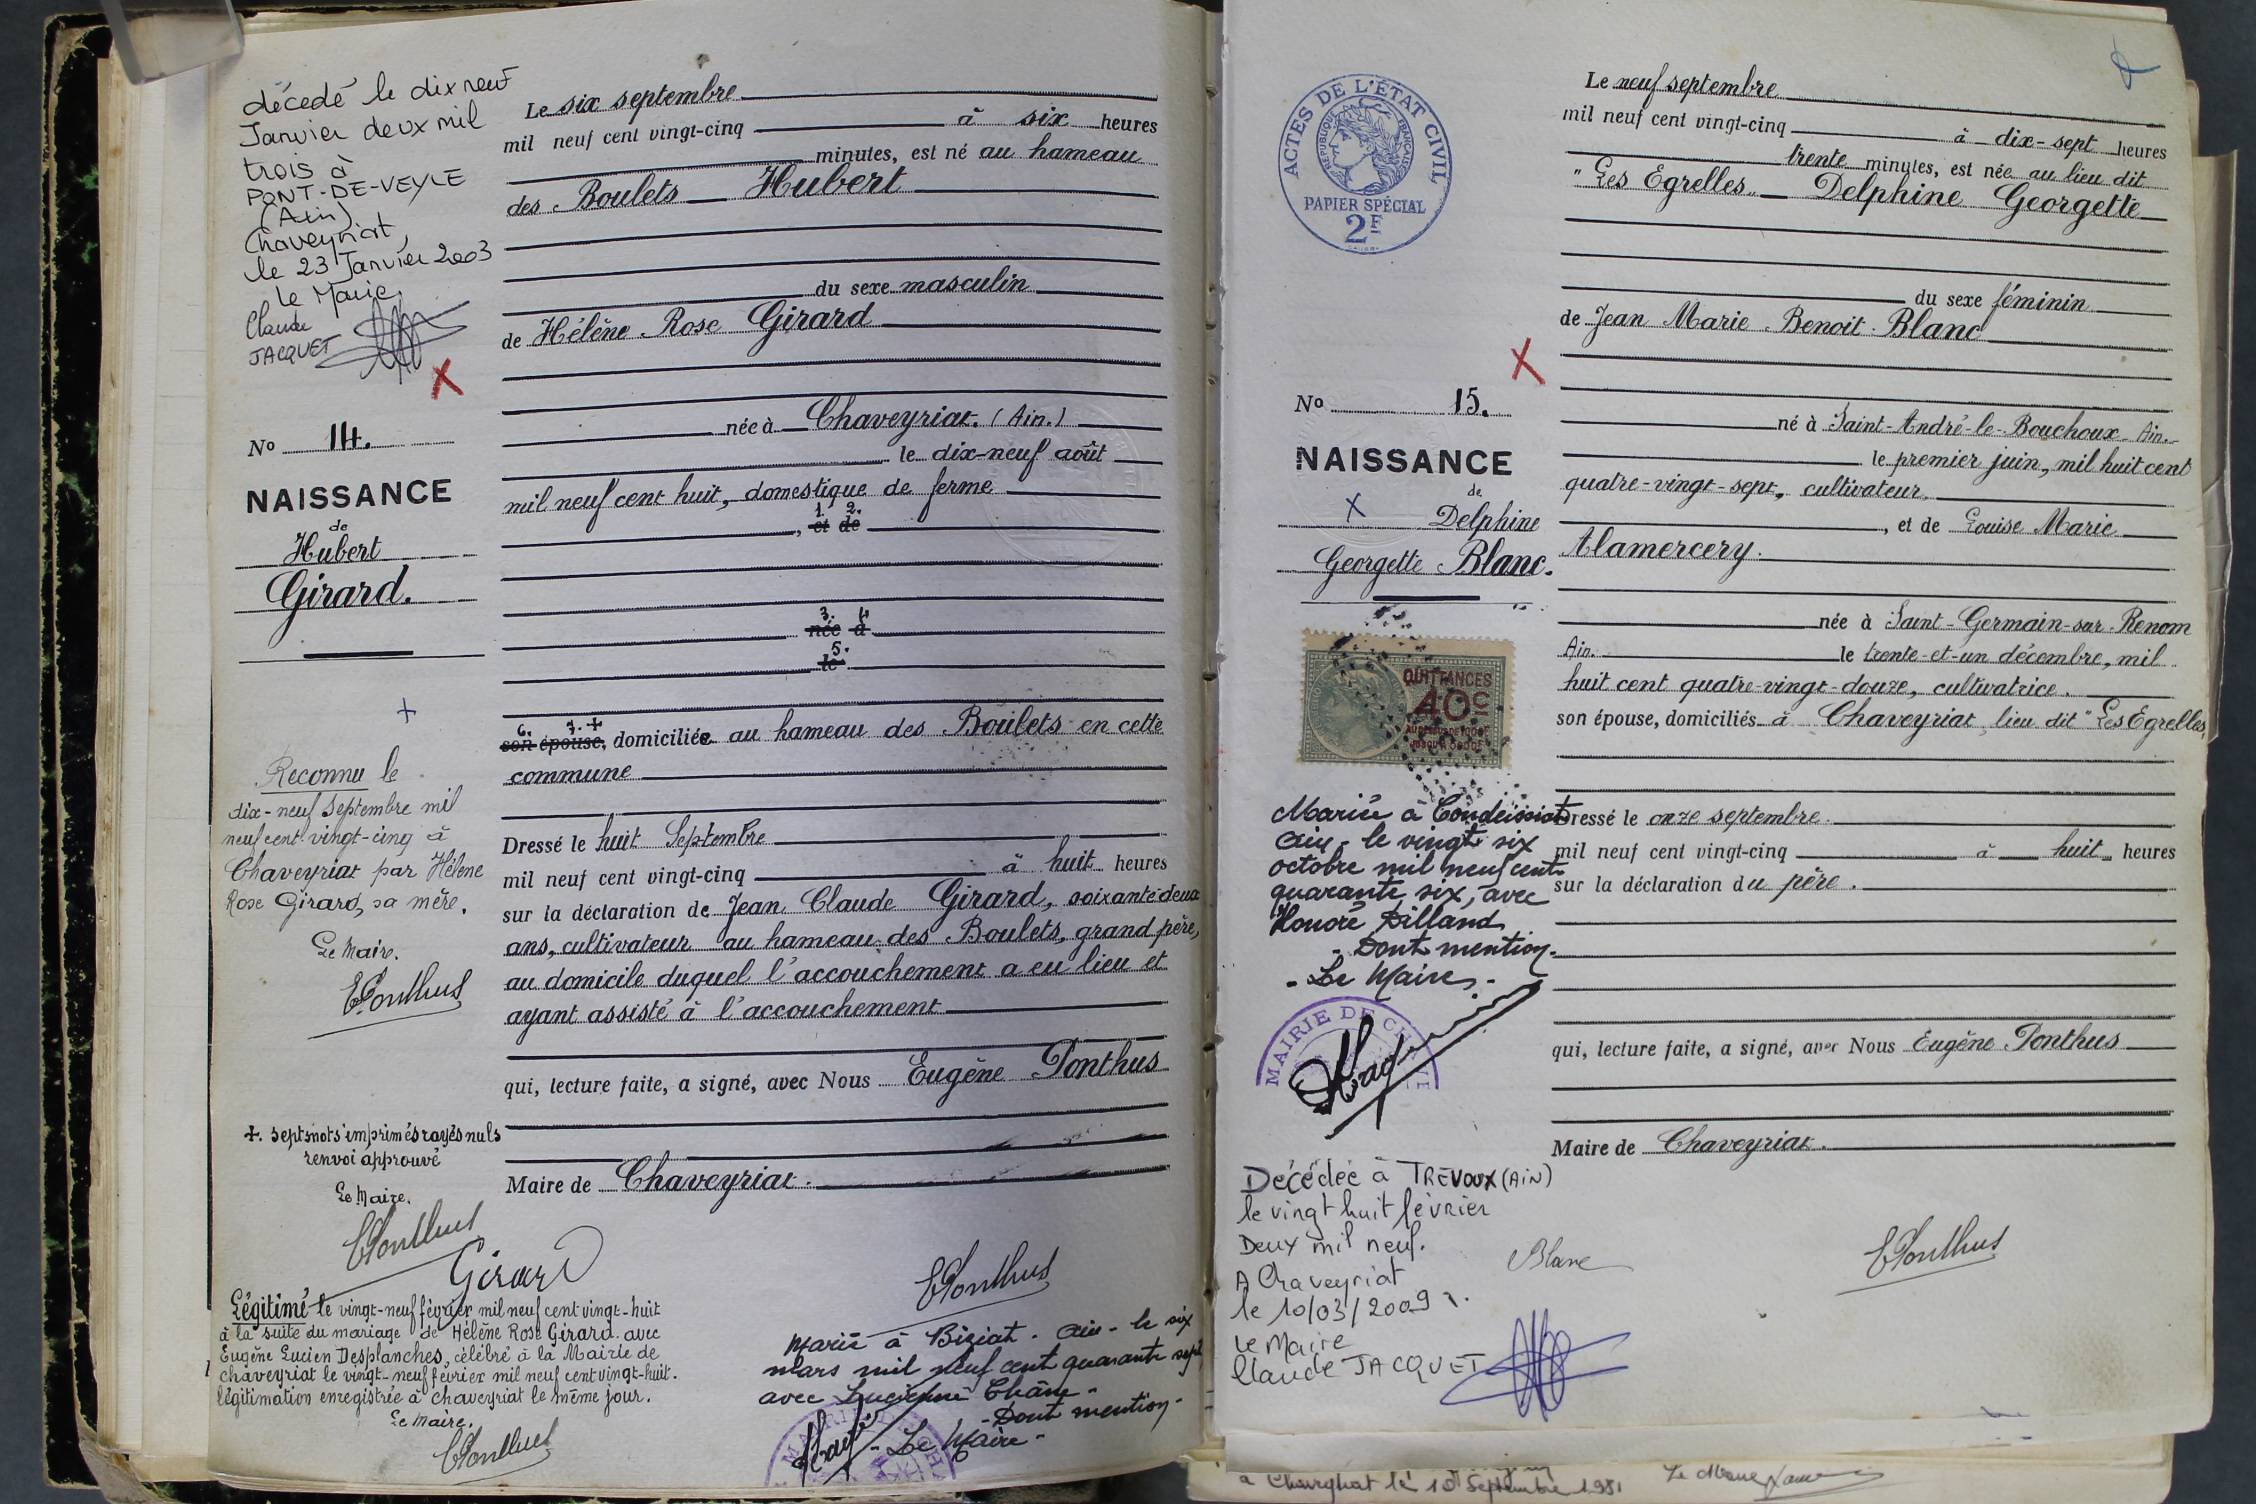 décedé le dix neuf
Janvier deux mil
trois à
PONT-DE-VEYLE
(Ain)
Chaveyriat,
le 23 Janvier 2003
le Maire.
Claude
JACQUET
No 14.
NAISSANCE
de
Hubert
Girard.
Reconnu le
dix-neuf Septembre mil
neuf cent vingt-cinq à
Chaveyriat par Hélène
Rose Girard, sa mère.
Le Maire.
EPonthus
+. sept mots imprimés rayés nuls
renvoi approuvé
Le Maire.
EPonthus
Le six septembre
mil neuf cent vingt-cinq à six heures
minutes, est né au hameau
des Boulets Hubert
du sexe masculin
de Hélène Rose Girard
née à Chaveyriat. (Ain.)
le dix-neuf août
mil neuf cent huit, domestique de ferme
1. 2.
, et de
3. 4
née à
5.
le
6. 7. +
son épouse, domiciliée au hameau des Boulets en cette
commune
Dressé le huit Septembre
mil neuf cent vingt-cinq à huit heures
sur la déclaration de Jean Claude Girard, soixante-deux
ans, cultivateur au hameau des Boulets, grand père,
au domicile duquel l'accouchement a eu lieu et
ayant assisté à l'accouchement
qui, lecture faite, a signé, avec Nous Eugène Ponthus
Maire de Chaveyriat.
Girard
EPonthus
Légitimé le vingt-neuf février mil neuf cent vingt-huit
à la suite du mariage de Hélène Rose Girard avec
Eugène Lucien Desplanches, célébré à la Mairie de
chaveyriat le vingt-neuf février mil neuf cent vingt-huit.
légitimation enregistrée à chaveyriat le même jour.
Le Maire.
EPonthus
Marié à Biziat - Ain - le six
mars mil neuf cent quarante sept
avec Lucienne
- Dont mention -
- Le Maire -
ACTES DE L'ÉTAT CIVIL
RÉPUBLIQUE FRANÇAISE
PAPIER SPÉCIAL
2F
No 15.
NAISSANCE
de
Delphine
Georgette Blanc.
QUITTANCES
40c
Mariée à Condeissiat
Ain - le vingt six
octobre mil neuf cent
quarante six, avec
Honoré Dilland
- Dont mention -
- Le Maire -
MAIRIE DE
Décédée à TREVOUX (AIN)
le vingt huit février
Deux mil neuf.
A Chaveyriat
le 10/03/2009
Le Maire
Claude JACQUET
Le neuf septembre
mil neuf cent vingt-cinq à dix-sept heures
trente minutes, est née au lieu dit
"Les Egrelles" Delphine Georgette
du sexe féminin
de Jean Marie Benoit Blanc
né à Saint-André-le-Bouchoux Ain.
le premier juin, mil huit cent
quatre-vingt-sept, cultivateur
, et de Louise Marie
Alamercery.
née à Saint-Germain-sur-Renom
Ain. le trente-et-un décembre, mil
huit cent quatre-vingt-douze, cultivatrice.
son épouse, domiciliés à Chaveyriat, lieu dit "Les Egrelles,
Dressé le onze septembre
mil neuf cent vingt-cinq à huit heures
sur la déclaration du père.
qui, lecture faite, a signé, avec Nous Eugène Ponthus
Maire de Chaveyriat.
Blanc
EPonthus
Septembre 1981